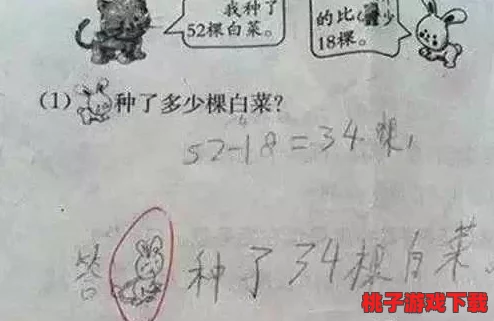 我种了
52棵白菜。
的比 少
18棵。
(1) 种了多少棵白菜?
52-18=34棵,
答 种了34棵白菜。
桃子游戏下载